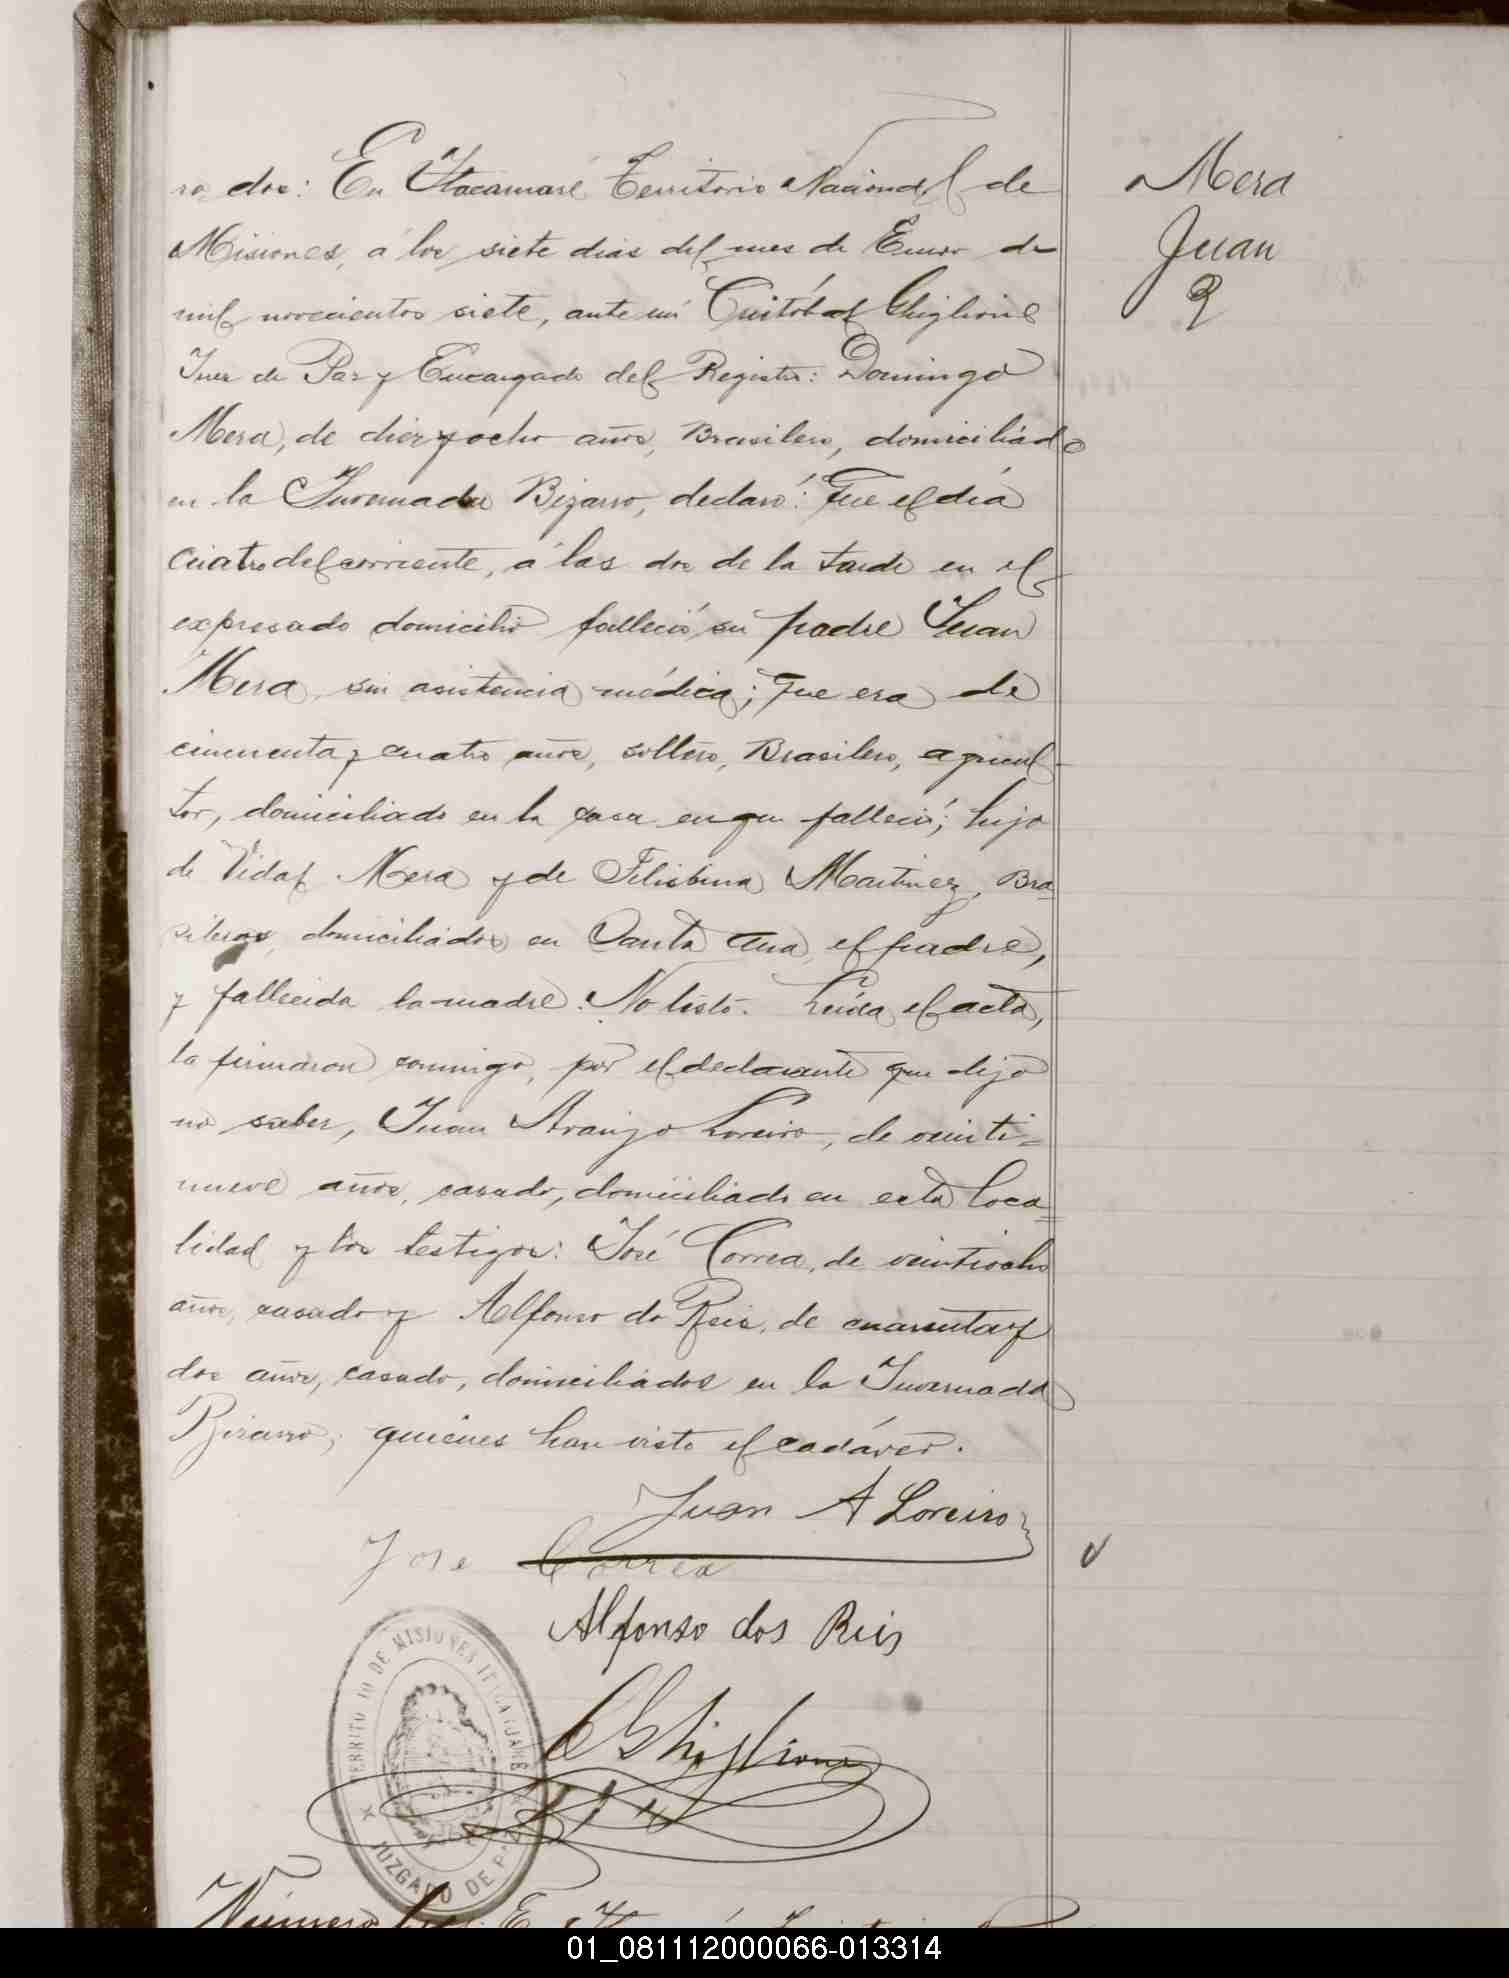 ro dos: En Itacaruaré Territorio Nacional de
Misiones, á los siete dias del mes de Enero de
mil novecientos siete, ante mi Cristóbal Ghiglione
Juez de Paz y Encargado del Registro: Domingo
Mera, de diez y ocho años, Brasilero, domiciliado
en la Invernada Bizarro, declaró: Que el día
cuatro del corriente, á las dos de la tarde en el
expresado domicilio falleció su padre Juan
Mera, sin asistencia médica; que era de
cincuenta y cuatro años, soltero, Brasilero, agricul-
tor, domiciliado en la casa en que falleció; hijo
de Vidal Mera y de Felisbina Martinez, Bra-
sileros, domiciliados en Santa Ana, el padre,
y fallecida la madre. No testó. Leída el acta,
la firmaron conmigo, por el declarante que dijo
no saber, Juan Araujo Loreiro, de veinti-
nueve años, casado, domiciliado en esta loca-
lidad y los testigos: José Correa, de veintiocho
años, casado y Alfonso do Reis, de cuarenta y
dos años, casado, domiciliados en la Invernada
Bizarro, quienes han visto el cadáver.
Juan A Loreiro
Jose Correa
Alfonso dos Reis
C Ghiglione
TERRITORIO DE MISIONES
JUZGADO DE PAZ
Mera
Juan
Número
01_081112000066-013314